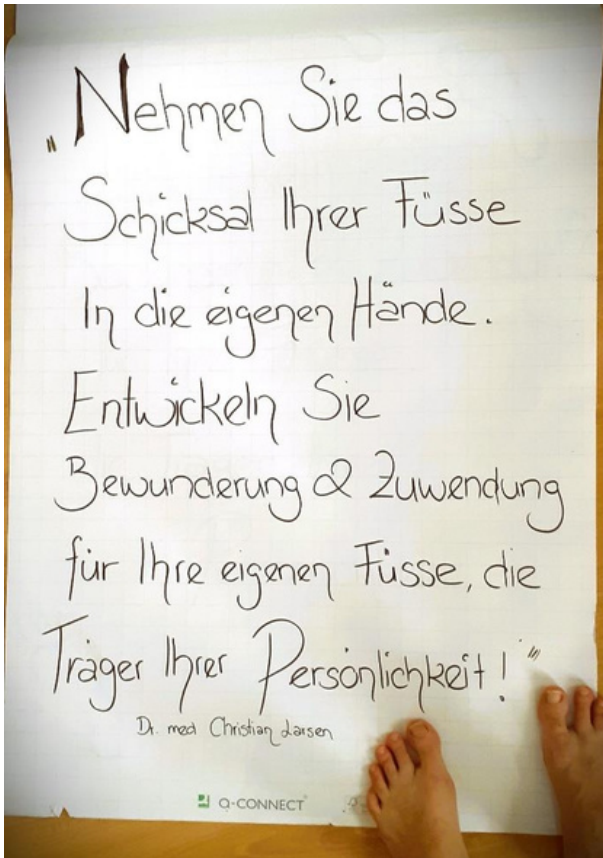 „Nehmen Sie das
Schicksal Ihrer Füsse
In die eigenen Hände.
Entwickeln Sie
Bewunderung & Zuwendung
für Ihre eigenen Füsse, die
Träger Ihrer Persönlichkeit!"
Dr. med Christian Larsen
Q-CONNECT